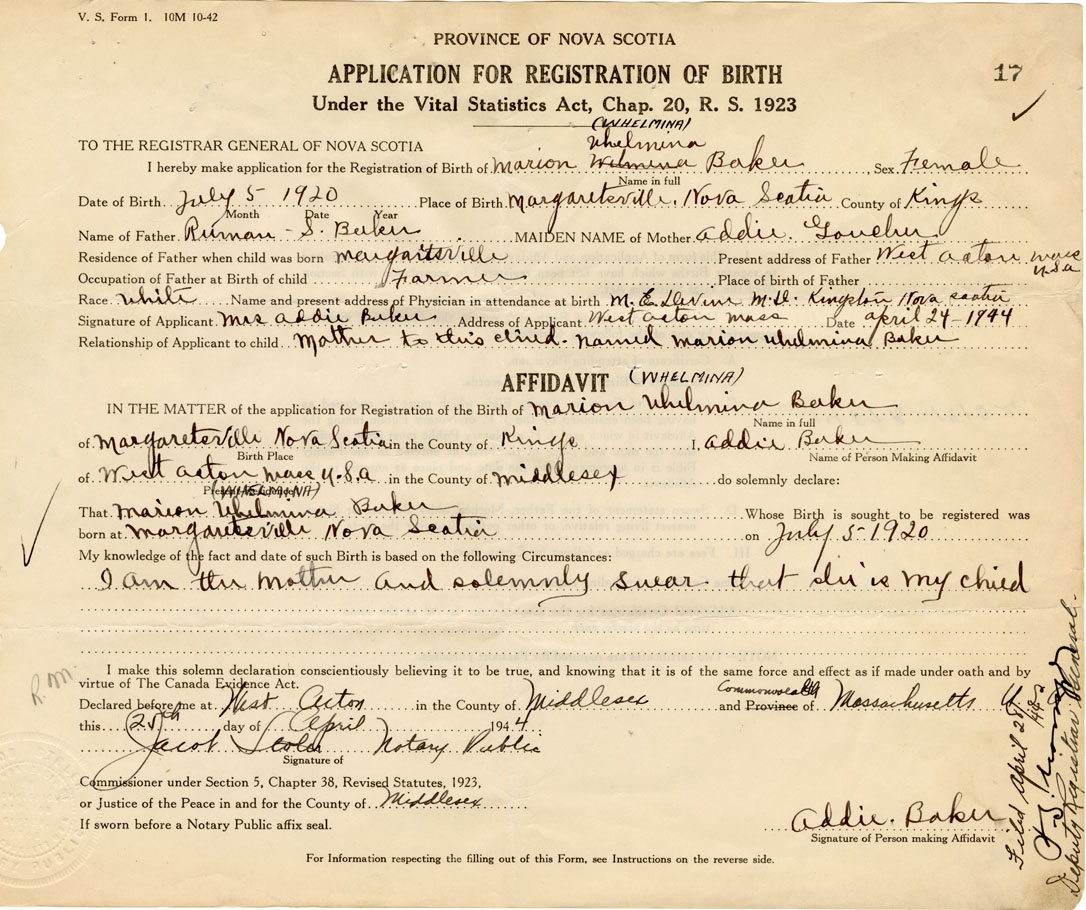 V. S. Form 1. 10M 10-42
PROVINCE OF NOVA SCOTIA
APPLICATION FOR REGISTRATION OF BIRTH
17
Under the Vital Statistics Act, Chap. 20, R. S. 1923
(WHELMINA)
TO THE REGISTRAR GENERAL OF NOVA SCOTIA
Whelmina
I hereby make application for the Registration of Birth of Marion Welmina Baker Sex Female
Name in full
Date of Birth July 5 1920 Place of Birth Margaretsville, Nova Scotia County of Kings
Month Date Year
Name of Father S. Baker MAIDEN NAME of Mother Addie
Residence of Father when child was born Margaretsville Present address of Father West Acton Mass
U.S.a
Occupation of Father at Birth of child Farmer Place of birth of Father
Race White Name and present address of Physician in attendance at birth M. E. M.D. Kingston Nova Scotia
Signature of Applicant Mrs Addie Baker Address of Applicant West Acton Mass Date April 24-1944
Relationship of Applicant to child Mother to this child. named Marion Whelmina Baker
AFFIDAVIT (WHELMINA)
IN THE MATTER of the application for Registration of the Birth of Marion Whelmina Baker
Name in full
of Margaretsville Nova Scotia in the County of Kings I, Addie Baker
Birth Place Name of Person Making Affidavit
of West Acton Mass U.S.a in the County of Middlesex do solemnly declare:
(WHELMINA)
That Marion Whelmina Baker Whose Birth is sought to be registered was
born at Margaretsville Nova Scotia on July 5-1920
My knowledge of the fact and date of such Birth is based on the following Circumstances:
I am the Mother and solemnly swear that she is my child
I make this solemn declaration conscientiously believing it to be true, and knowing that it is of the same force and effect as if made under oath and by
virtue of The Canada Evidence Act.
R.M.
Commonwealth
Declared before me at West Acton in the County of Middlesex and Province of Massachusetts
this 25th day of April 1944
Jacob Notary Public
Signature of
Commissioner under Section 5, Chapter 38, Revised Statutes, 1923,
or Justice of the Peace in and for the County of Middlesex
If sworn before a Notary Public affix seal.
Addie. Baker
Signature of Person making Affidavit
For Information respecting the filling out of this Form, see Instructions on the reverse side.
Filed April
Deputy Registrar General.